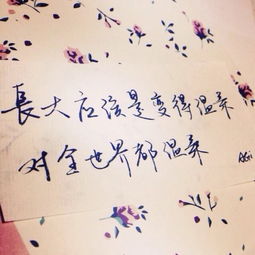 長大应该是变得温柔
对全世界都温柔